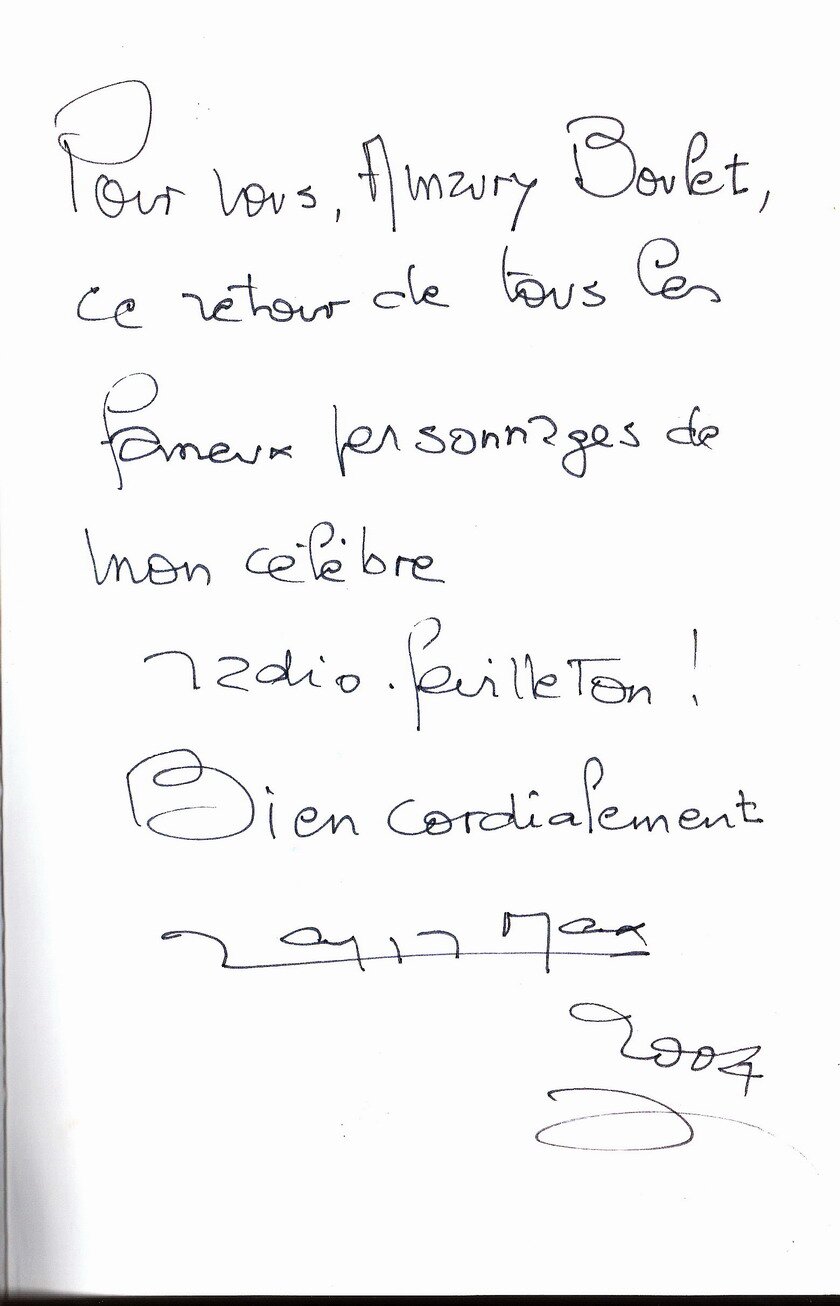 Pour vous, Amaury Boulet,
ce retour de tous les
fameux personnages de
mon célèbre
radio-feuilleton !
Bien cordialement
Zappy Max
2004